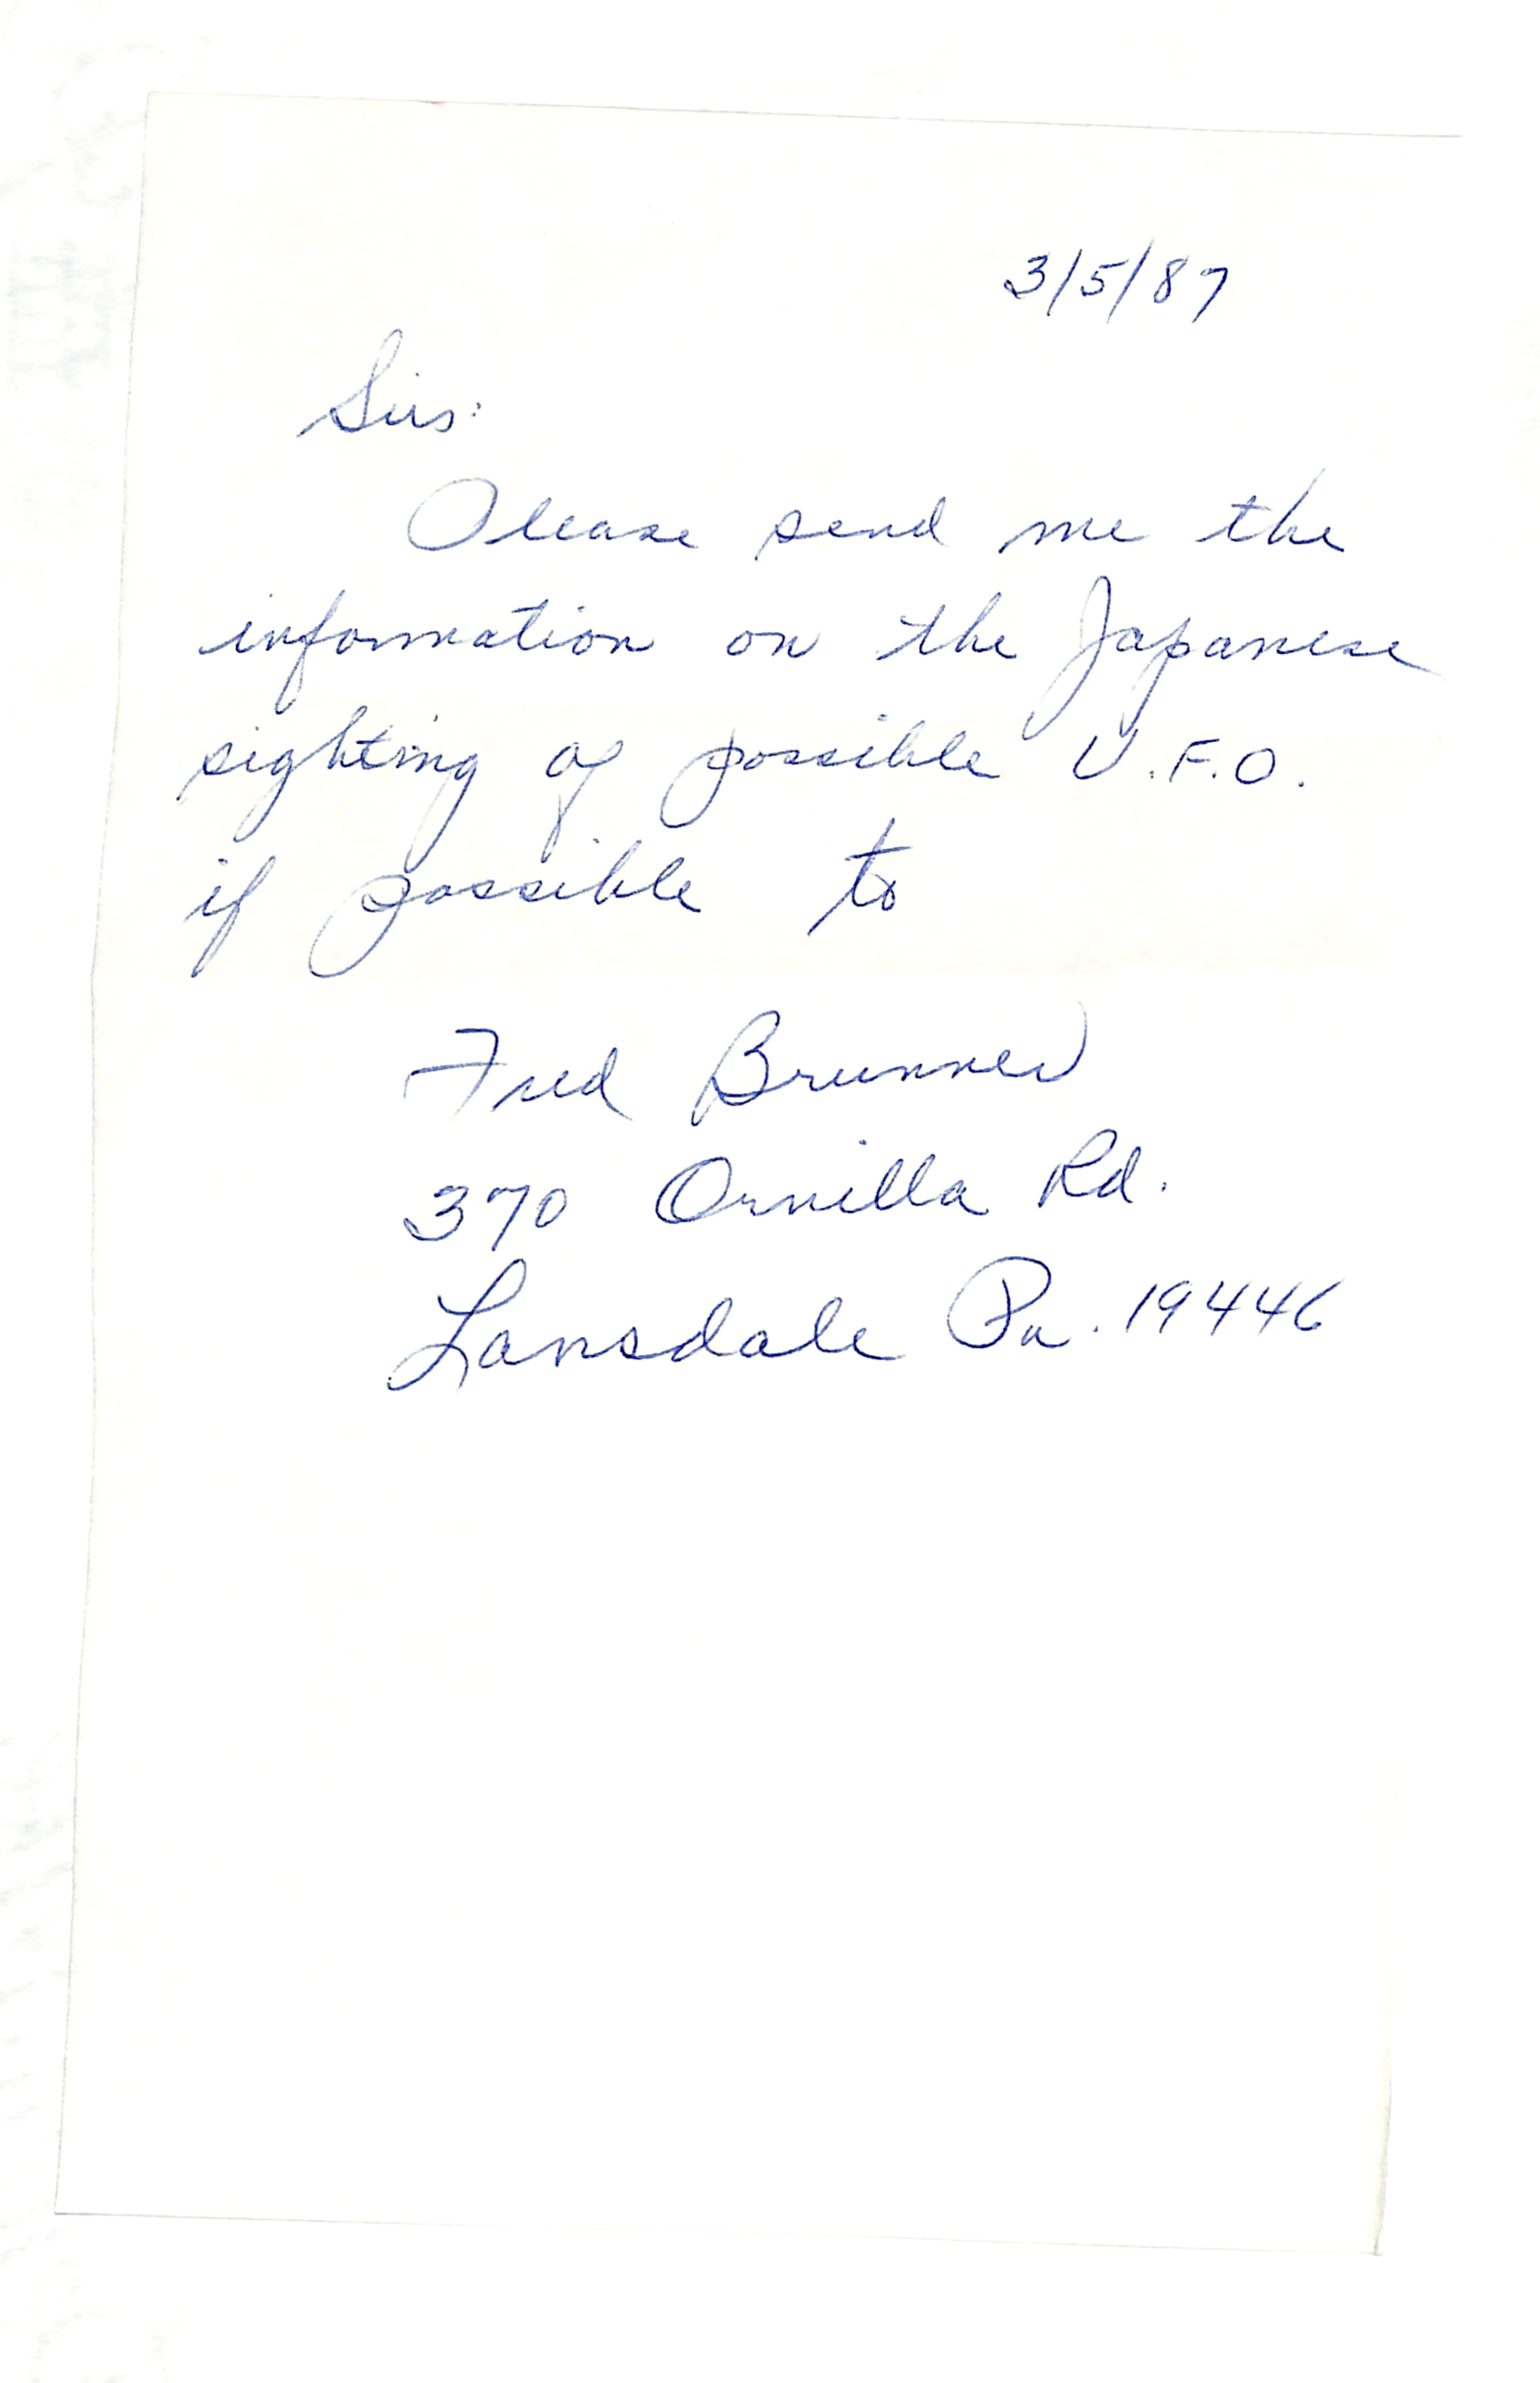 3/5/87
Sirs:
Please send me the
information on the Japanese
sighting of possible U.F.O.
if possible to
Fred Brunner
370 Ornilla Rd.
Lansdale Pa. 19446